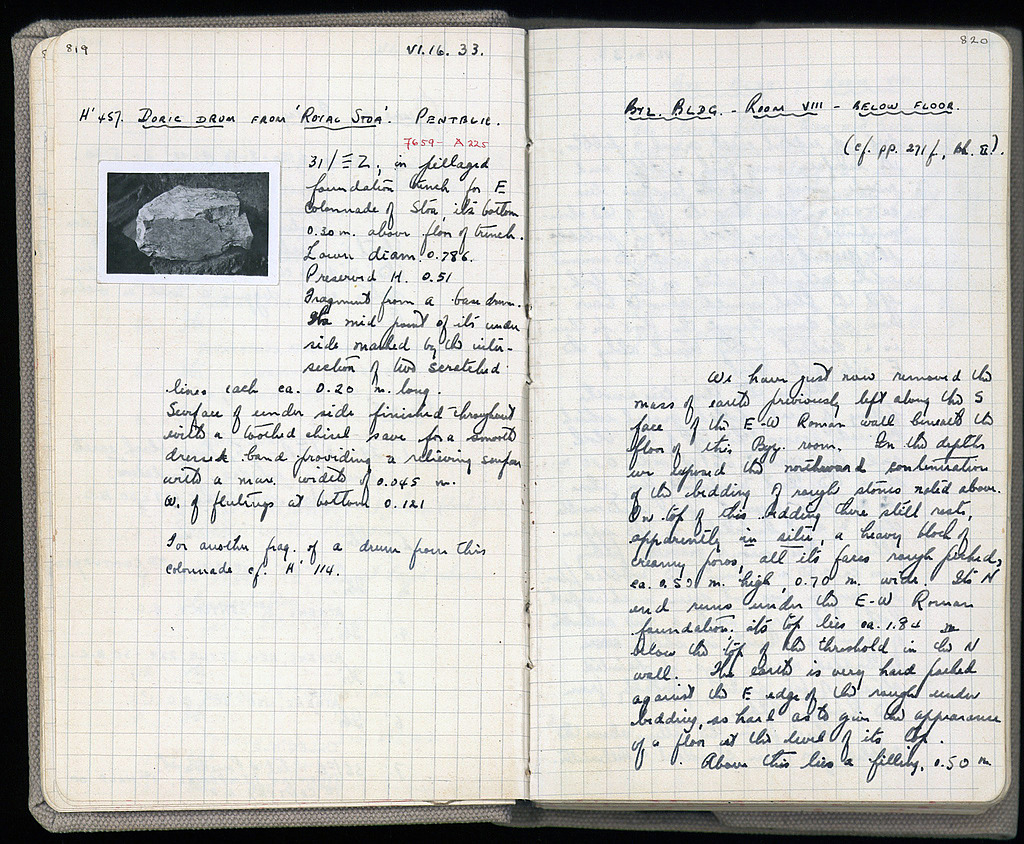 819
VI.16.33.
H' 457. DORIC DRUM FROM 'ROYAL STOA'. PENTELIC.
7659 - A 225
31/ΞΖ, in pillaged
foundation trench for E
colonnade of Stoa, its bottom
0.30 m. above floor of trench.
Lower diam. 0.786.
Preserved H. 0.51
Fragment from a base drum.
The mid point of its under
side marked by the inter-
section of two scratched
lines each ca. 0.20 m. long.
Surface of under side finished throughout
with a toothed chisel save for a smooth
dressed band providing a relieving surface
with a max. width of 0.045 m.
W. of flutings at bottom 0.121
For another frag. of a drum from this
colonnade cf. H' 114.
820
BYZ. BLDG. - ROOM VIII - BELOW FLOOR.
(cf. pp. 271 f, Bk. II).
We have just now removed the
mass of earth previously left along the S
face of the E-W Roman wall beneath the
floor of this Byz. room. In the depths
we exposed the northward continuation
of the bedding of rough stones noted above.
On top of this bedding there still rests,
apparently in situ, a heavy block of
creamy poros, all its faces rough picked,
ca. 0.50 m. high, 0.70 m. wide. Its N
end runs under the E-W Roman
foundation; its top lies ca. 1.84 m
below the top of the threshold in the N
wall. The earth is very hard packed
against the E edge of the rough under
bedding, so hard as to give the appearance
of a floor at the level of its top.
Above this lies a filling, 0.50 m